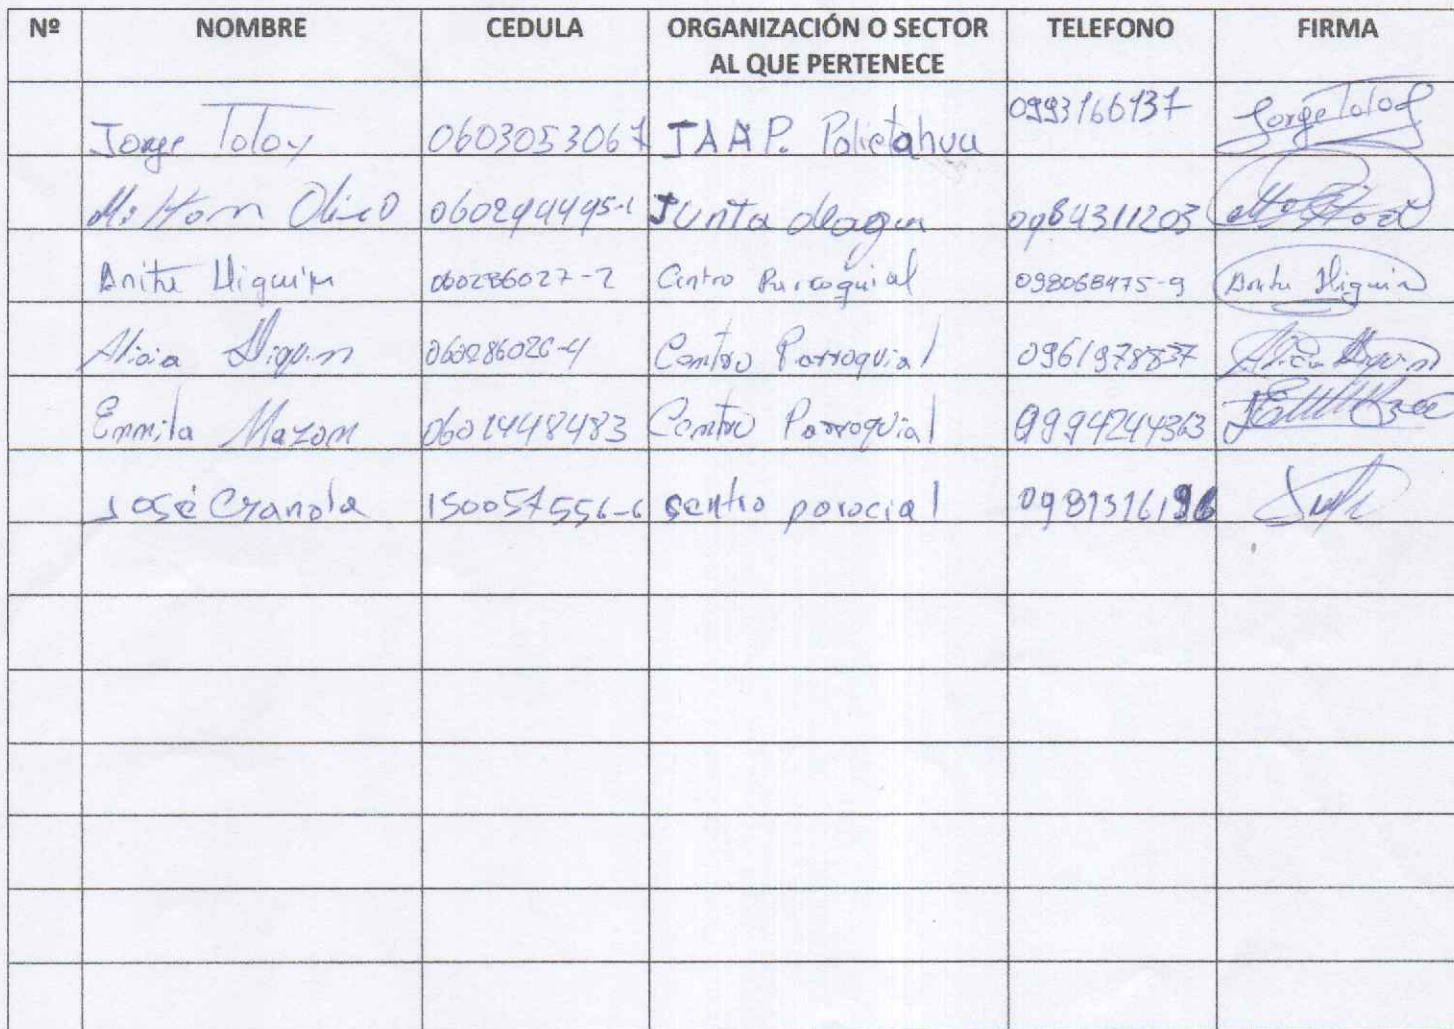 Nº NOMBRE CEDULA ORGANIZACIÓN O SECTOR AL QUE PERTENECE TELEFONO FIRMA
Jorge Toloy 0603053067 JAAP. Palictahua 0993166137 Jorge Toloy
Milton Olivo 060294495-1 Junta deagua 0984311203
Anita Lliquin 060286027-2 Centro Parroquial 098068475-9 Anita Lliquin
Alicia Lliquin 060286026-4 Centro Parroquial 0961978837 Alicia Lliquin
Enmila Mazon 0601448483 Centro Parroquial 0994244363
José Granola 150057556-6 sentro parocial 0981316196